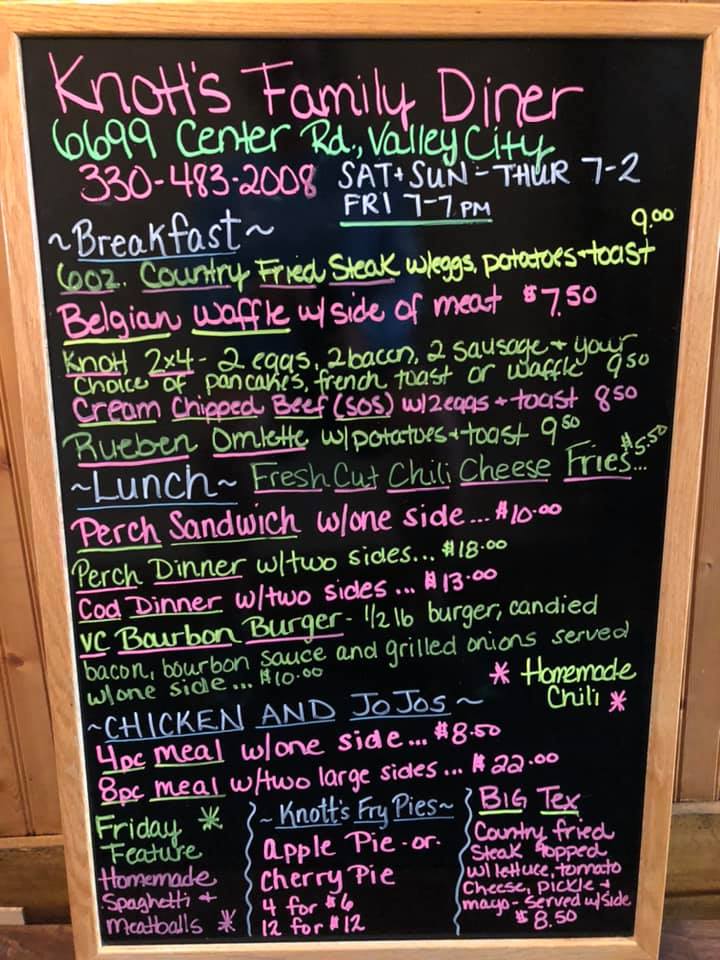 Knott's Family Diner
6699 Center Rd., Valley City
330-483-2008 SAT + SUN - THUR 7-2
FRI 7-7 PM
~Breakfast~
9.00
6oz. Country Fried Steak w/eggs, potatoes + toast
Belgian Waffle w/ side of meat $7.50
Knott 2x4 - 2 eggs, 2 bacon, 2 sausage + your
Choice of pancakes, french toast or waffle 9.50
Cream Chipped Beef (SOS) w/2 eggs + toast 8.50
Rueben Omlette w/potatoes + toast 9.50
~Lunch~ Fresh Cut Chili Cheese Fries... $5.50
Perch Sandwich w/one side... $10.00
Perch Dinner w/two sides... $18.00
Cod Dinner w/two sides... $13.00
VC Bourbon Burger - 1/2 lb burger, candied
bacon, bourbon sauce and grilled onions served
w/one side... $10.00
* Homemade
Chili *
~CHICKEN AND JoJos~
4pc meal w/one side... $8.50
8pc meal w/two large sides... $22.00
Friday *
Feature
Homemade
Spaghetti +
Meatballs *
~Knott's Fry Pies~
Apple Pie -or-
Cherry Pie
4 for $6
12 for $12
BIG TEX
Country fried
Steak topped
w/ lettuce, tomato
Cheese, pickle +
mayo - served w/side
$8.50